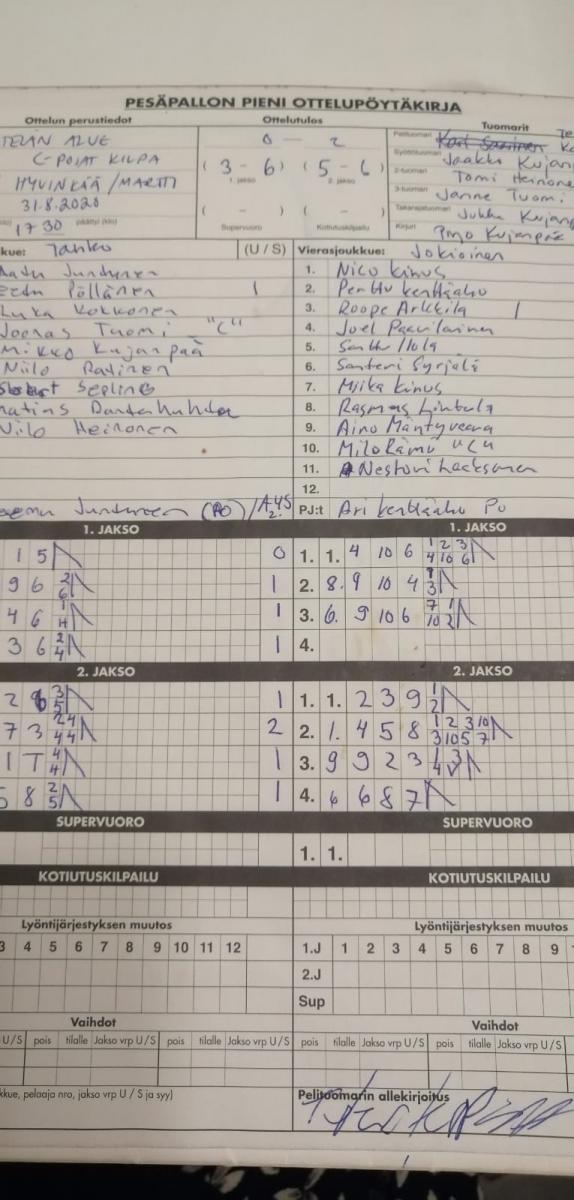 PESÄPALLON PIENI OTTELUPÖYTÄKIRJA
Ottelun perustiedot
Ottelutulos
Tuomarit
TELÄN ALUE
C-POJAT KILPA
HYVINKÄÄ / MARTTI
31.8.2020
17 30 päättyi (klo)
0 – 2
( 3 – 6 ) ( 5 – 6 )
1. jakso 2. jakso
( – ) ( – )
Supervuoro Kotiutuskilpailu
Pelituomari
Syöttötuomari Jaakko Kujanp
2-tuomari Tomi Heinone
3-tuomari Janne Tuomi
Takarajatuomari Jukka Kujanp
Kirjuri Pinjo Kujanpää
kue: Tahko (U / S)
Jundunen
Pöllänen 1
Luka Kokkonen
Joonas Tuomi "C"
Mikko Kujanpää
Niilo Ratinen
Sepling
Niilo Heinonen
Jundunen (PO) / A.YS 2.
Vierasjoukkue: Jokioinen
1. Nico Kinus
2. Perttu Kenttäaho
3. Roope Arkkila 1
4. Joel Paavilainen
5. Santtu Illola
6. Santeri Syrjälä
7. Miika Kinus
8. Rasmus Hintula
9. Aino Mäntyvaara
10. Milo Rämö "C"
11. Nestori Laaksonen
12.
PJ:t Ari Kenttäaho PO
1. JAKSO
1 5
0
9 6 2 6
1
4 6 1 4
1
3 6 2 4
1
1. JAKSO
1. 1. 4 10 6 1 2 3 4 10 6
2. 8. 9 10 4 1 3
3. 6. 9 10 6 7 1 10 2
4.
2. JAKSO
2 6 3 5
1
7 3 24 44
2
1 T 4 4
1
5 8 2 5
1
2. JAKSO
1. 1. 2 3 9 1 2
2. 1. 4 5 8 1 2 3 10 3 10 5 7
3. 9 9 2 3 1 3 4
4. 6 6 8 7
SUPERVUORO
SUPERVUORO
1. 1.
KOTIUTUSKILPAILU
KOTIUTUSKILPAILU
Lyöntijärjestyksen muutos
3 4 5 6 7 8 9 10 11 12
Lyöntijärjestyksen muutos
1.J 1 2 3 4 5 6 7 8 9
2.J
Sup
Vaihdot
U / S pois tilalle Jakso vrp U / S pois tilalle Jakso vrp U / S
Vaihdot
pois tilalle Jakso vrp U / S pois tilalle Jakso vrp U / S
kkue, pelaaja nro, jakso vrp U / S ja syy)
Pelituomarin allekirjoitus